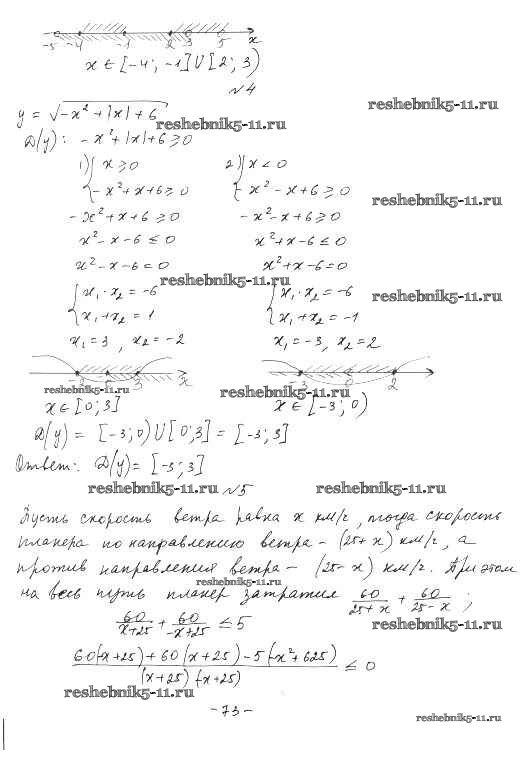 -5 -4 -1 2 3 5 x
x ∈ [-4; -1] ∪ [2; 3)
№4
reshebnik5-11.ru
y = √(-x² + |x| + 6)
reshebnik5-11.ru
D(y): -x² + |x| + 6 ≥ 0
1) { x ≥ 0 2) { x < 0
-x² + x + 6 ≥ 0 -x² - x + 6 ≥ 0
reshebnik5-11.ru
-x² + x + 6 ≥ 0 -x² - x + 6 ≥ 0
x² - x - 6 ≤ 0 x² + x - 6 ≤ 0
x² - x - 6 = 0 x² + x - 6 = 0
reshebnik5-11.ru
{ x₁ · x₂ = -6 { x₁ · x₂ = -6
reshebnik5-11.ru
x₁ + x₂ = 1 x₁ + x₂ = -1
x₁ = 3, x₂ = -2 x₁ = -3, x₂ = 2
-2 0 3 x -3 0 2
reshebnik5-11.ru reshebnik5-11.ru
x ∈ [0; 3] x ∈ [-3; 0)
D(y) = [-3; 0) ∪ [0; 3] = [-3; 3]
Ответ: D(y) = [-3; 3]
reshebnik5-11.ru №5 reshebnik5-11.ru
Пусть скорость ветра равна x км/г, тогда скорость
планера по направлению ветра - (25 + x) км/г, а
против направления ветра - (25 - x) км/г. При этом
reshebnik5-11.ru
на весь путь планер затратил 60/(25 + x) + 60/(25 - x);
60/(x + 25) + 60/(-x + 25) ≤ 5
reshebnik5-11.ru
(60(-x + 25) + 60(x + 25) - 5(-x² + 625))/((x + 25)(-x + 25)) ≤ 0
reshebnik5-11.ru
- 73 -
reshebnik5-11.ru